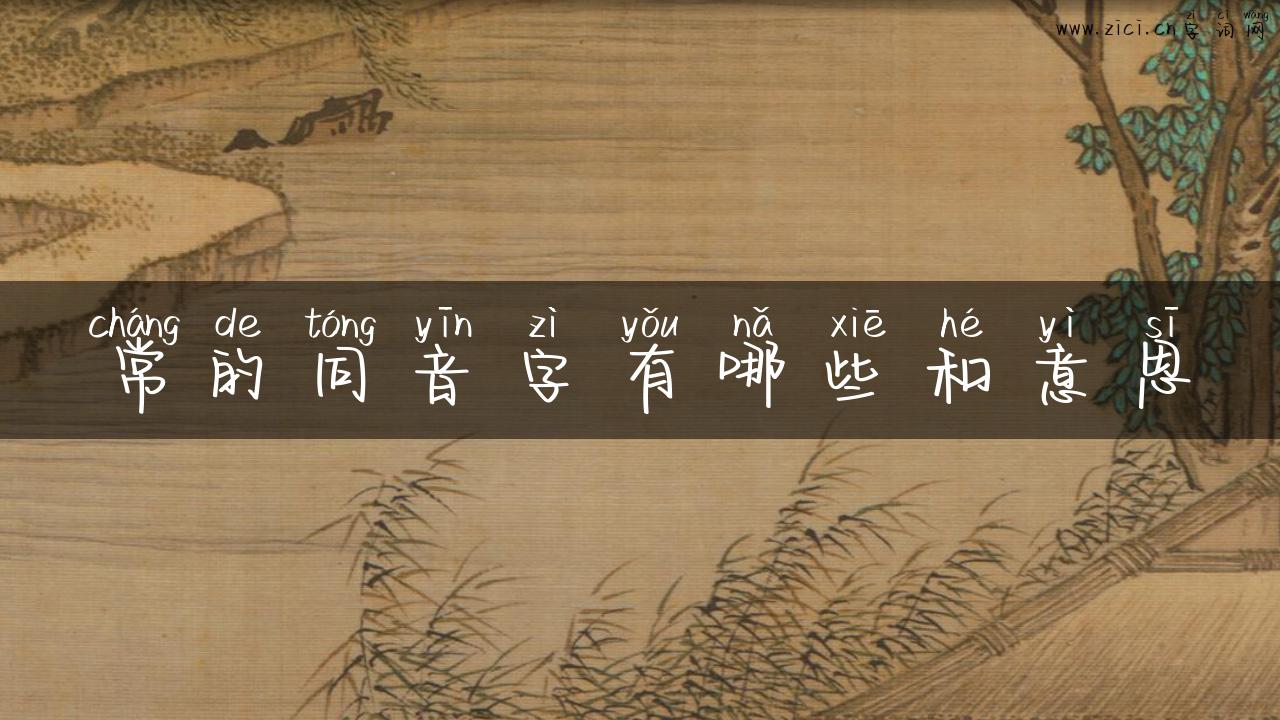 zì cí wǎng
www.zici.cn字词网
cháng de tóng yīn zì yǒu nǎ xiē hé yì sī
常的同音字有哪些和意思